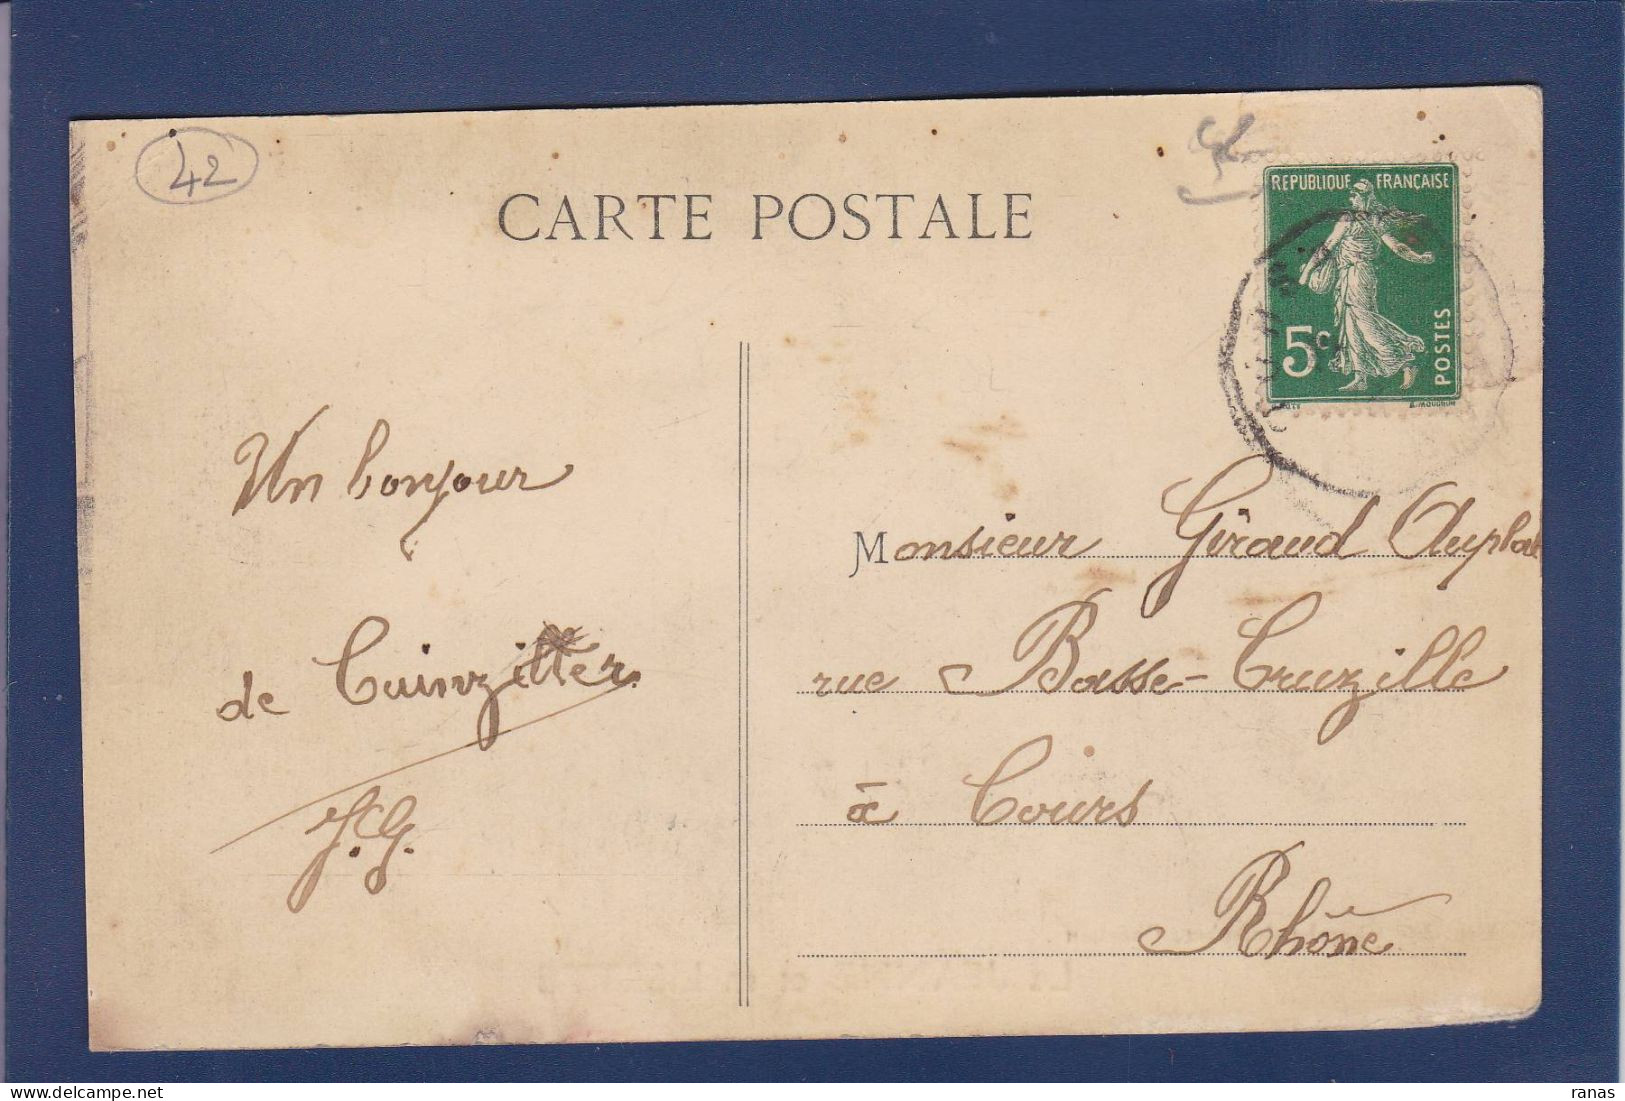 42
CARTE POSTALE
REPUBLIQUE FRANÇAISE
5c
POSTES
Un bonjour
de Cuinzitter
J.G.
Monsieur Giraud Duplat
rue Basse-Cruzille
à Cours
Rhône
ranas